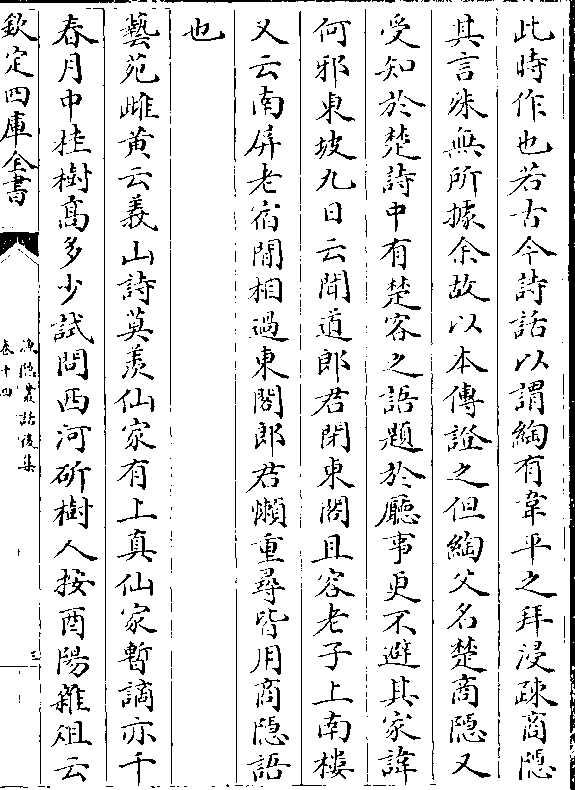 此時作也若古今詩話以謂綯有韋平之拜浸疎商隱
其言殊無所據余故以本傳證之但綯父名楚商隱又
受知於楚詩中有楚客之語題於廳事更不避其家諱
何邪東坡九日云聞道郎君閉東閤且容老子上南樓
又云南屏老宿閒相過東閤郎君懶重尋皆用商隱語
也
藝苑雌黄云義山詩莫羡仙家有上真仙家暫謫亦千
春月中桂樹髙多少試問西河斫樹人按酉陽雜俎云
欽定四庫全書
漁隱叢話後集
卷十四
三